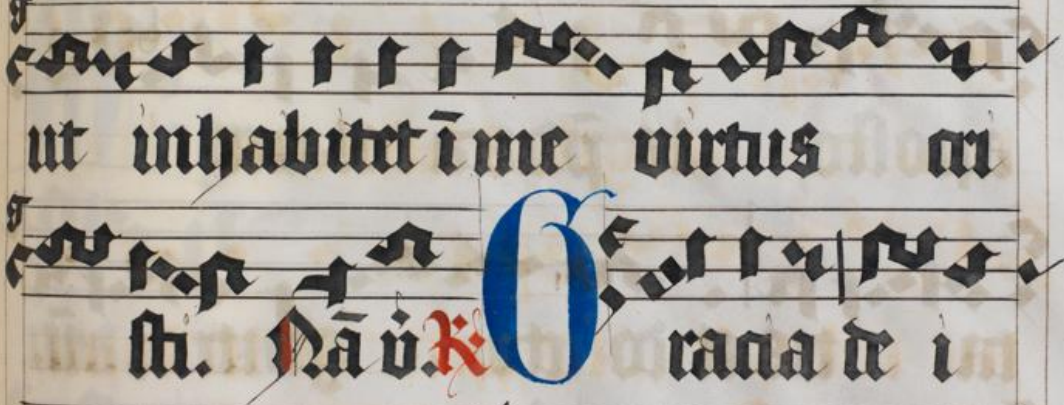 ut inhabitet ī me virtus cri
sti. Nā v̇. R Gracia de i